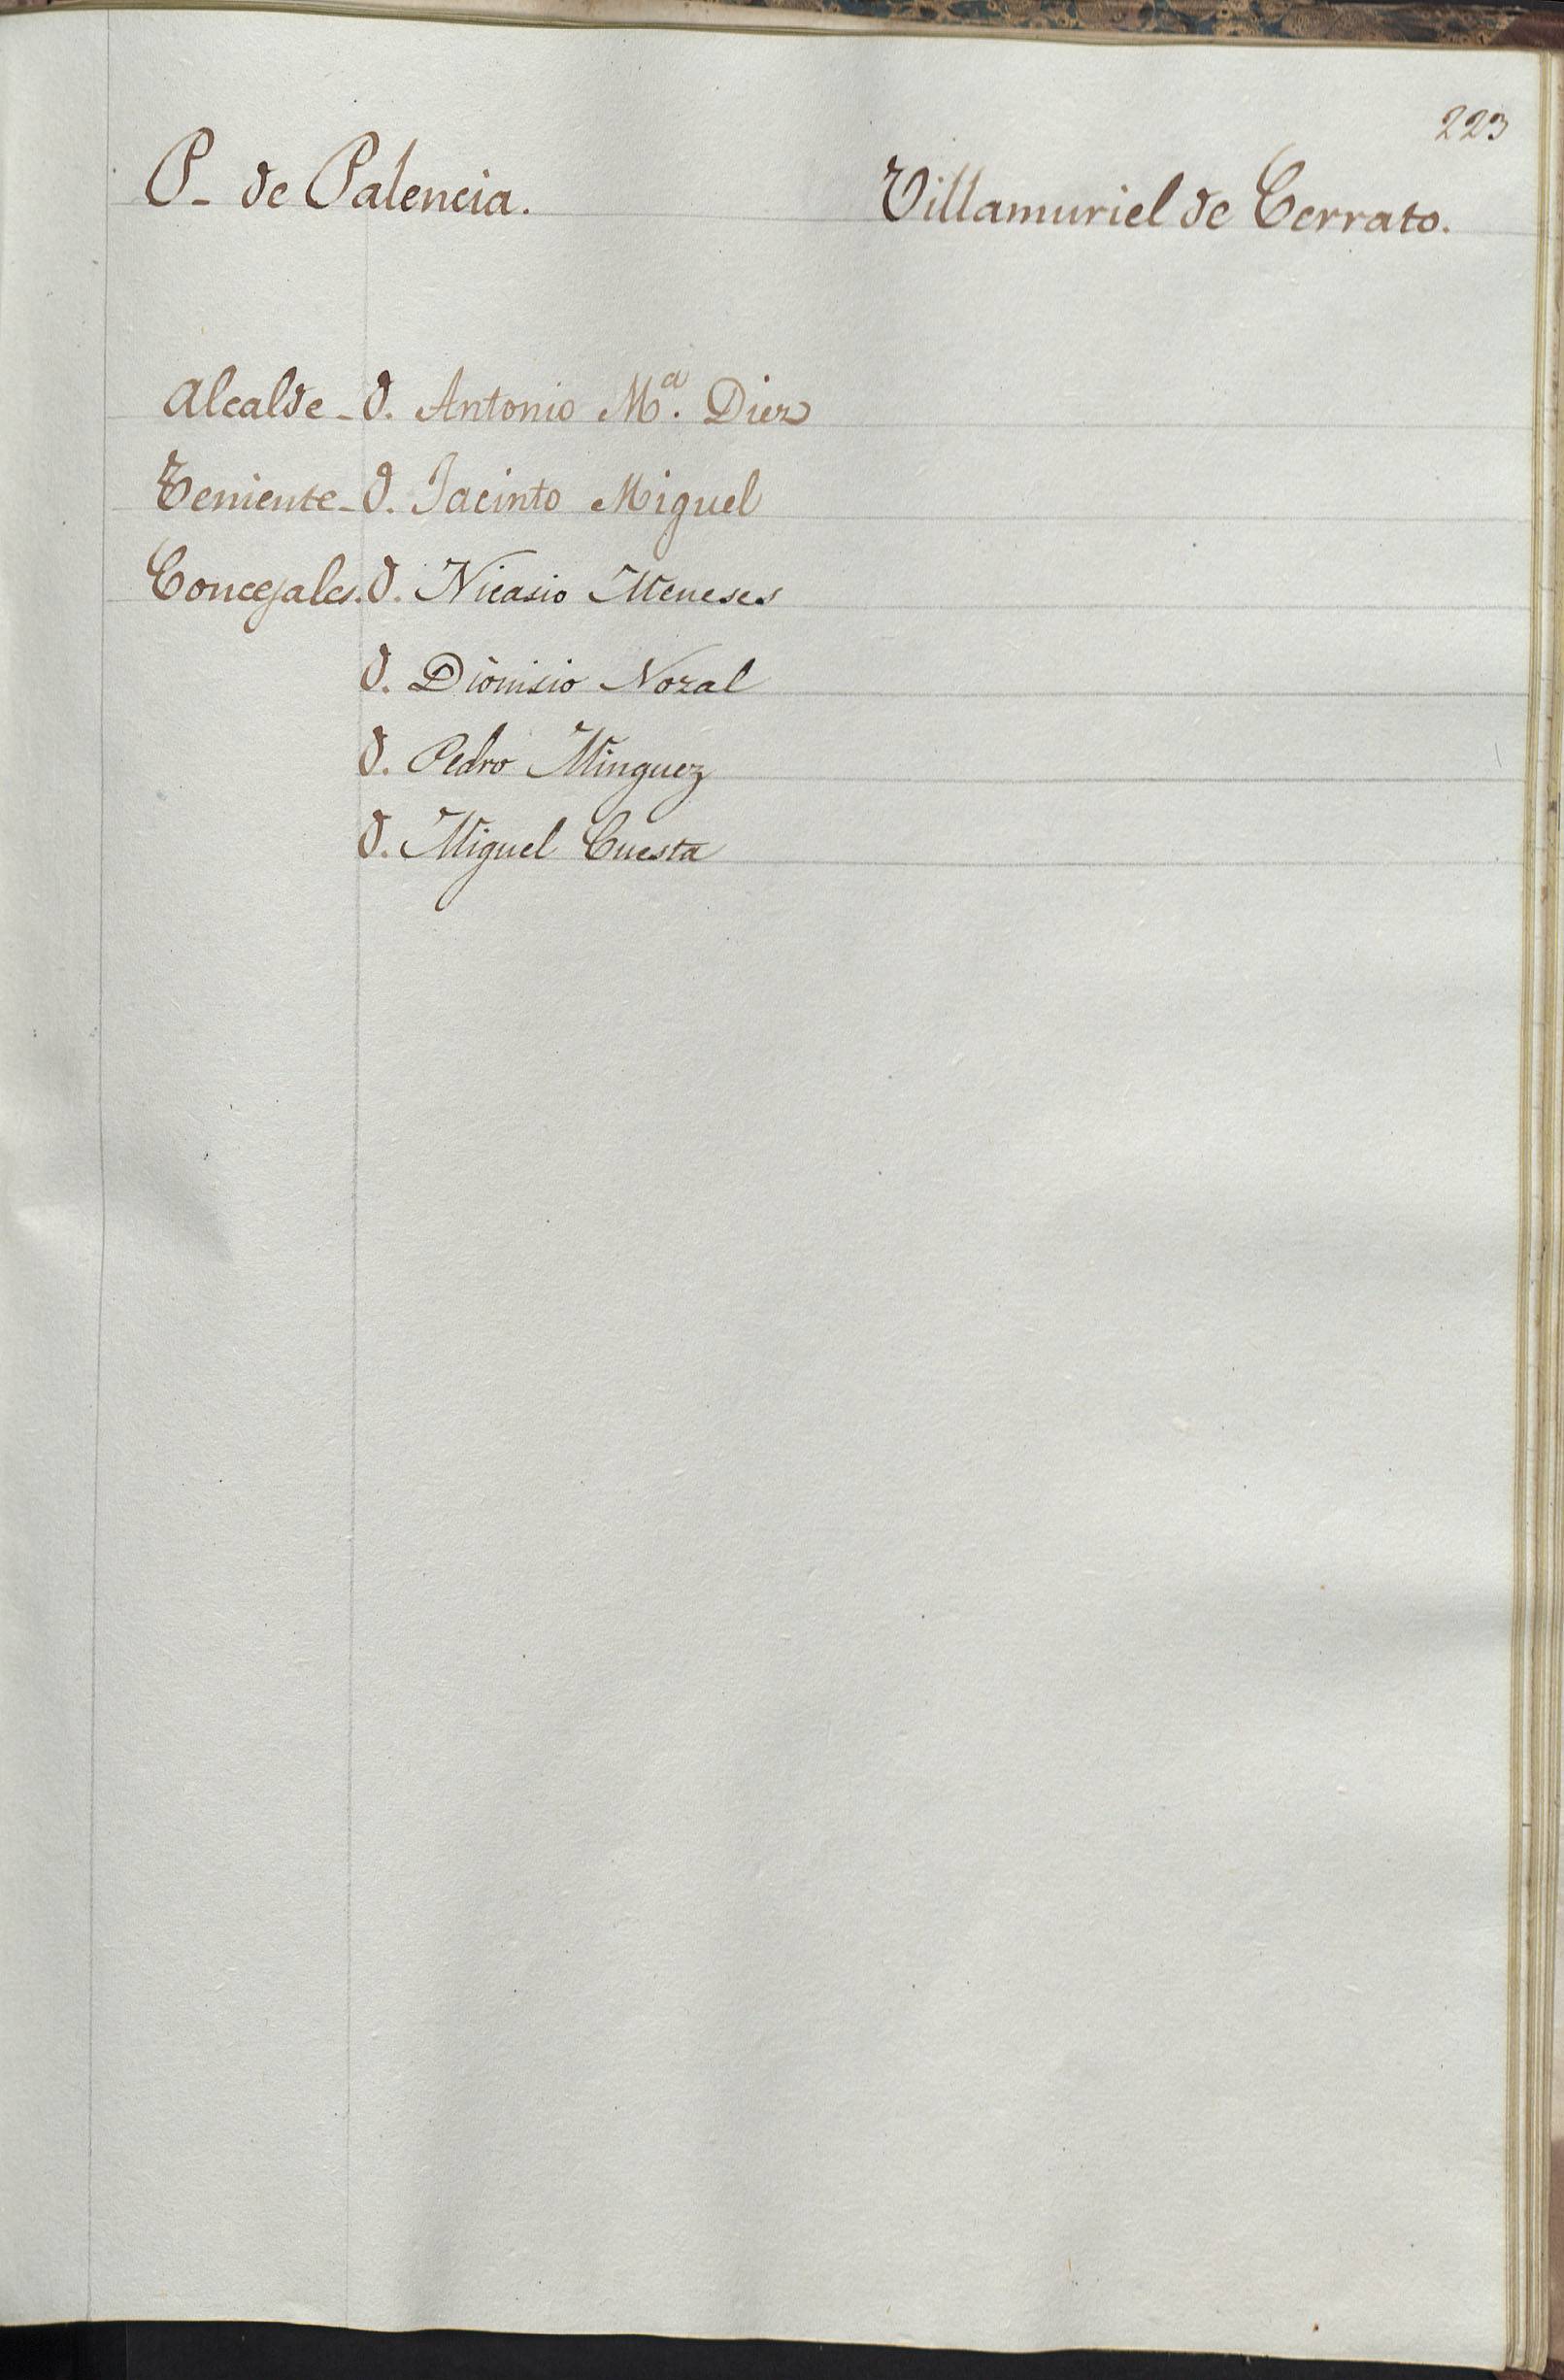 223
P- de Palencia. Villamuriel de Cerrato.
Alcalde- D. Antonio Mª. Diez
Teniente- D. Jacinto Miguel
Concejales. D. Nicasio Meneses
D. Dionisio Nozal
D. Pedro Minguez
D. Miguel Cuesta